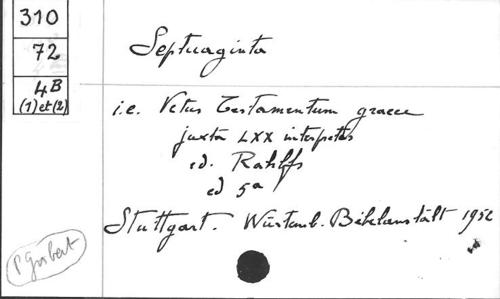 310
72
4B
(1) et (2)
Septuaginta
i.e. Vetus Testamentum graece
juxta LXX interpretes
ed. Rahlfs
ed 5a
Stuttgart. Würtemb. Bibelanstalt 1952
P